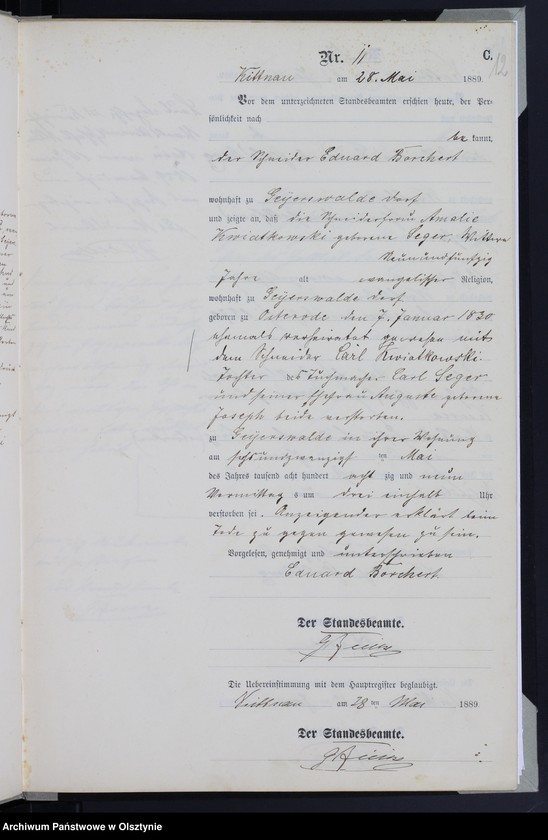 C.
12
Nr. 11
Kittnau am 28. Mai 1889.
Vor dem unterzeichneten Standesbeamten erschien heute, der Per-
sönlichkeit nach
be kannt,
der Schneider Eduard Borchert
wohnhaft zu Geyerswalde dorf
und zeigte an, daß die Schneiderfrau Amalie
Kwiatkowski geborene Seger, Wittwe
Neunundfünfzig
Jahre alt evangelischer Religion,
wohnhaft zu Geyerswalde dorf
geboren zu Osterode den 7. Januar 1830
ehemals verheiratet gewesen mit
dem Schneider Carl Kwiatkowski
Tochter des Tuchmacher Carl Seger
und seiner Ehefrau Auguste geborene
Joseph beide verstorben.
zu Geyerswalde in ihrer Wohnung
am sechsundzwanzigst ten Mai
des Jahres tausend acht hundert acht zig und neun
Vormittag s um drei einhalb Uhr
verstorben sei. Anzeigender erklärt beim
Tode zu gegen gewesen zu sein.
Vorgelesen, genehmigt und unterschrieben
Eduard Borchert
Der Standesbeamte.
Die Uebereinstimmung mit dem Hauptregister beglaubigt.
Kittnau am 28 ten Mai 1889
Der Standesbeamte.
Archiwum Państwowe w Olsztynie